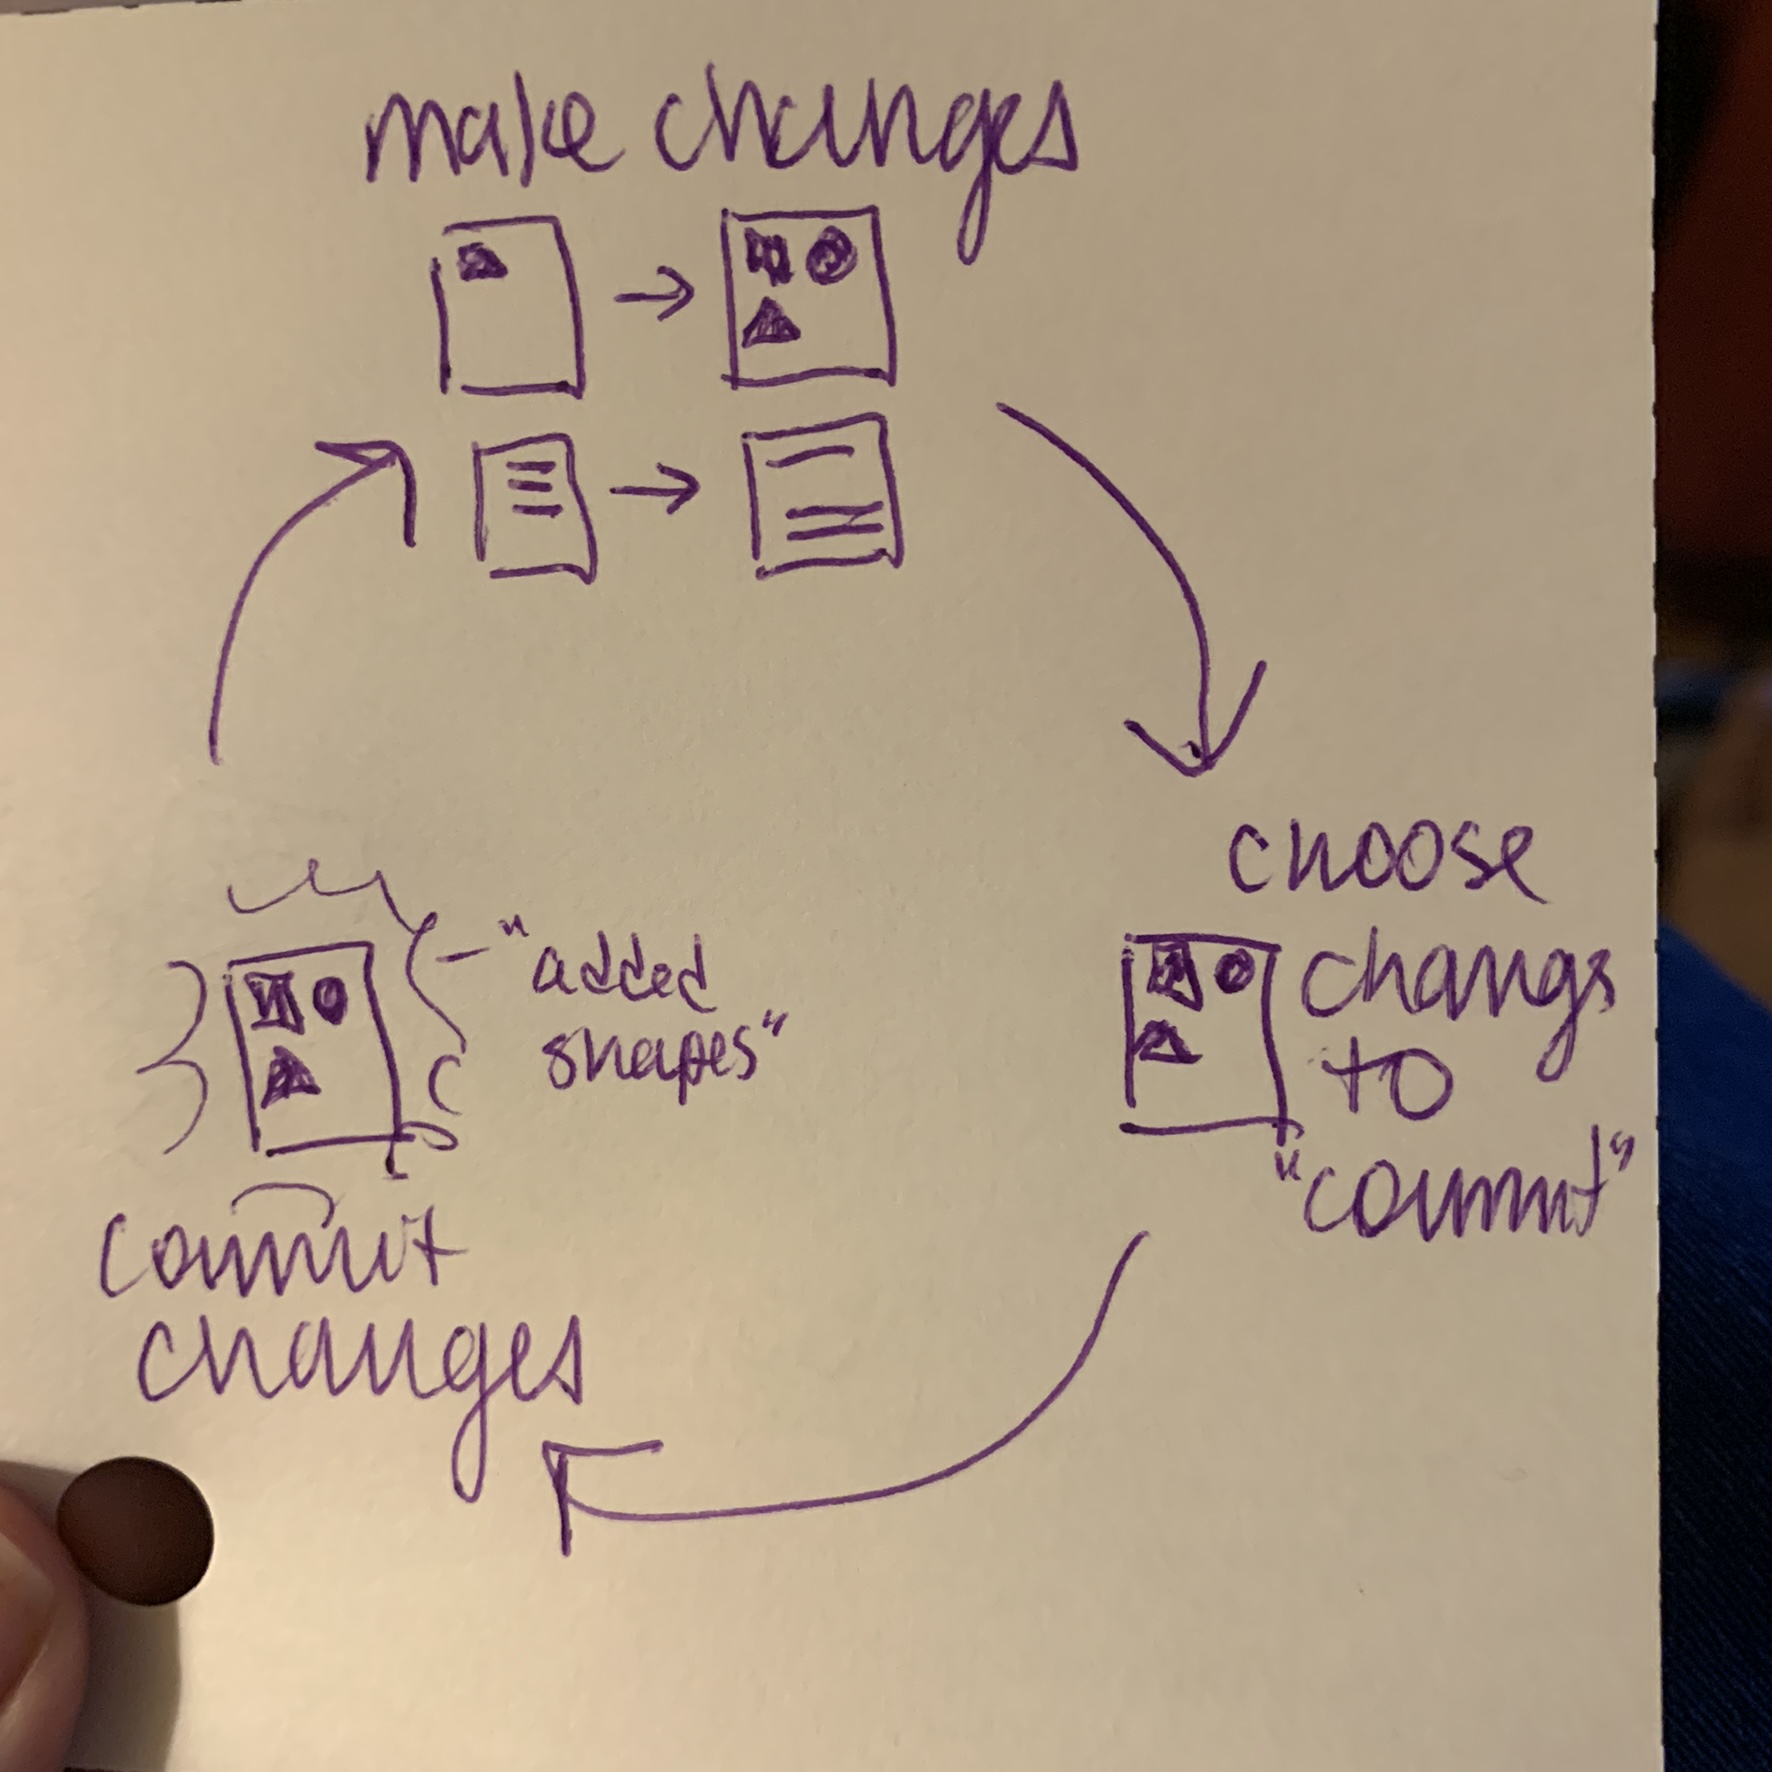 make changes
choose
changs
to
"commit"
"added
shapes"
commit
changes